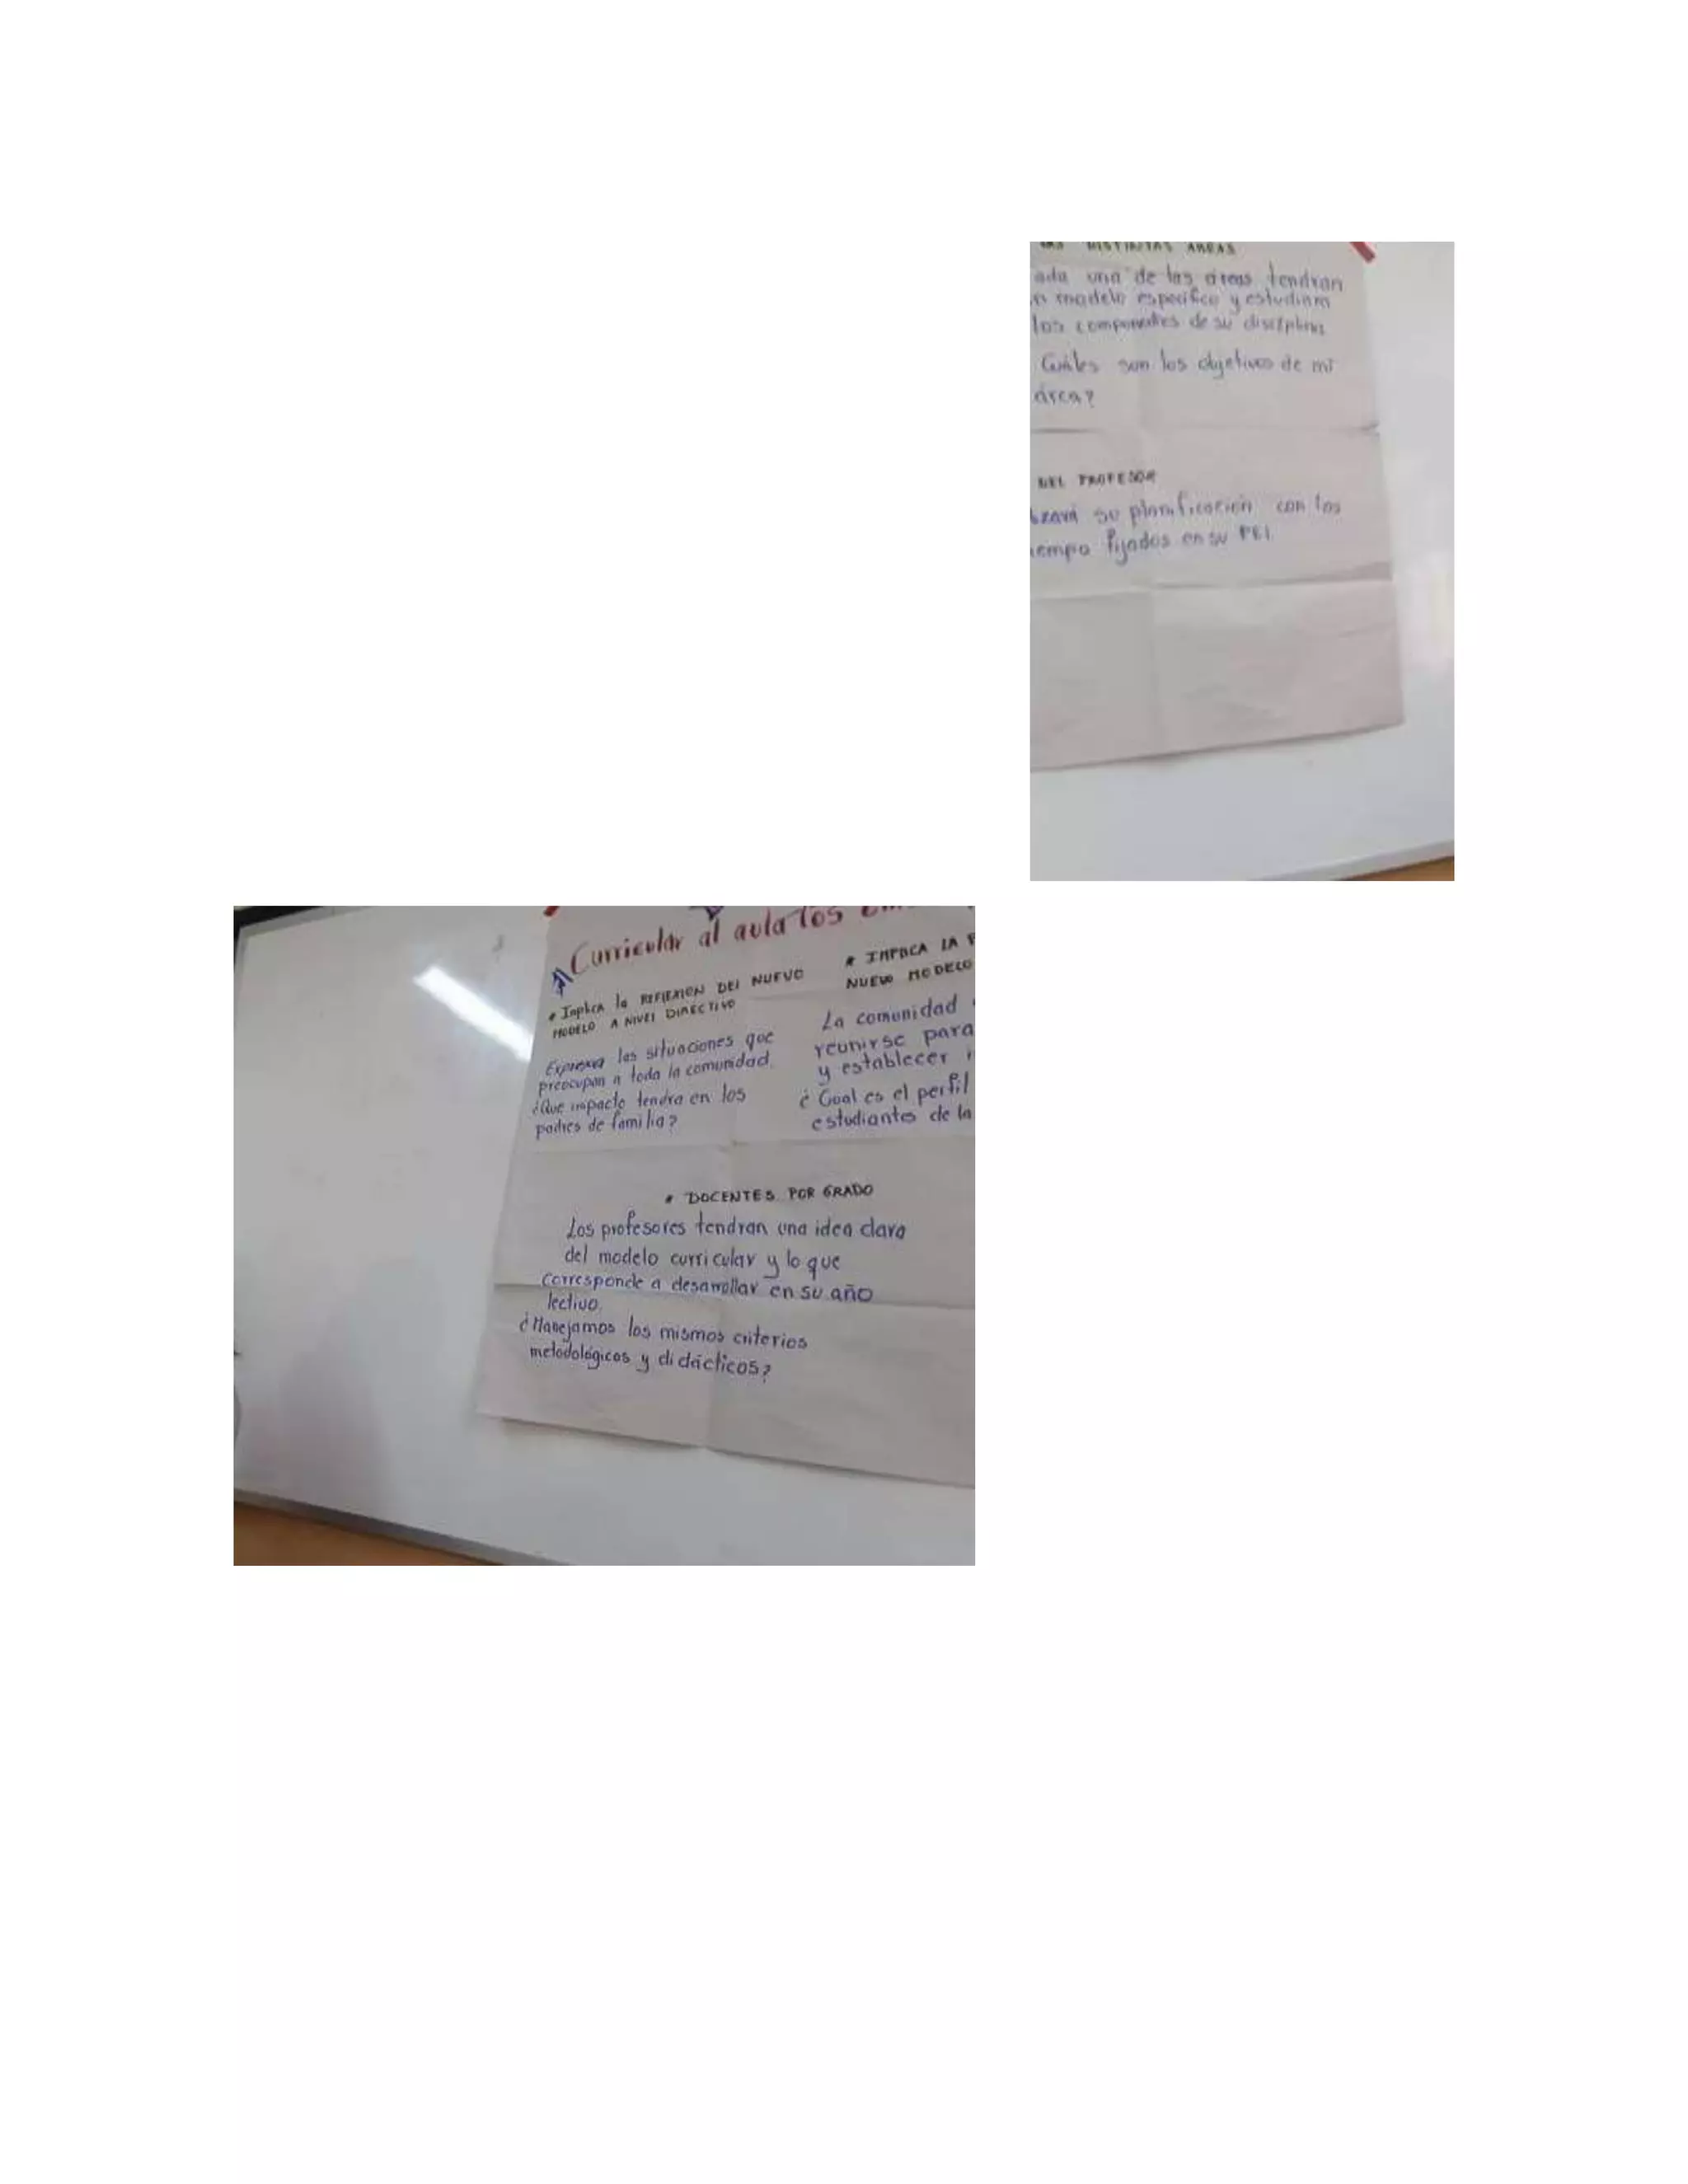 DISTINTAS AREAS
una de las áreas tendran
modelo específico y estudiaran
los componentes de su disciplina
Cuáles son los objetivos de mi
área?
DEL PROFESOR
su planificación con los
fijados en su PEI
Curricular al aula los
* Implica la REFLEXION DEL NUEVO
MODELO A NIVEL DIRECTIVO
las situaciones que
preocupan a toda la comunidad.
¿Que impacto tendra en los
padres de familia?
* IMPLICA LA
NUEVO MODELO
La comunidad
reunirse para
y establecer
¿ Cual es el perfil
estudiantes de la
* DOCENTES POR GRADO
Los profesores tendran una idea clara
del modelo curricular y lo que
corresponde a desarrollar en su año
lectivo.
¿Manejamos los mismos criterios
metodológicos y didácticos?